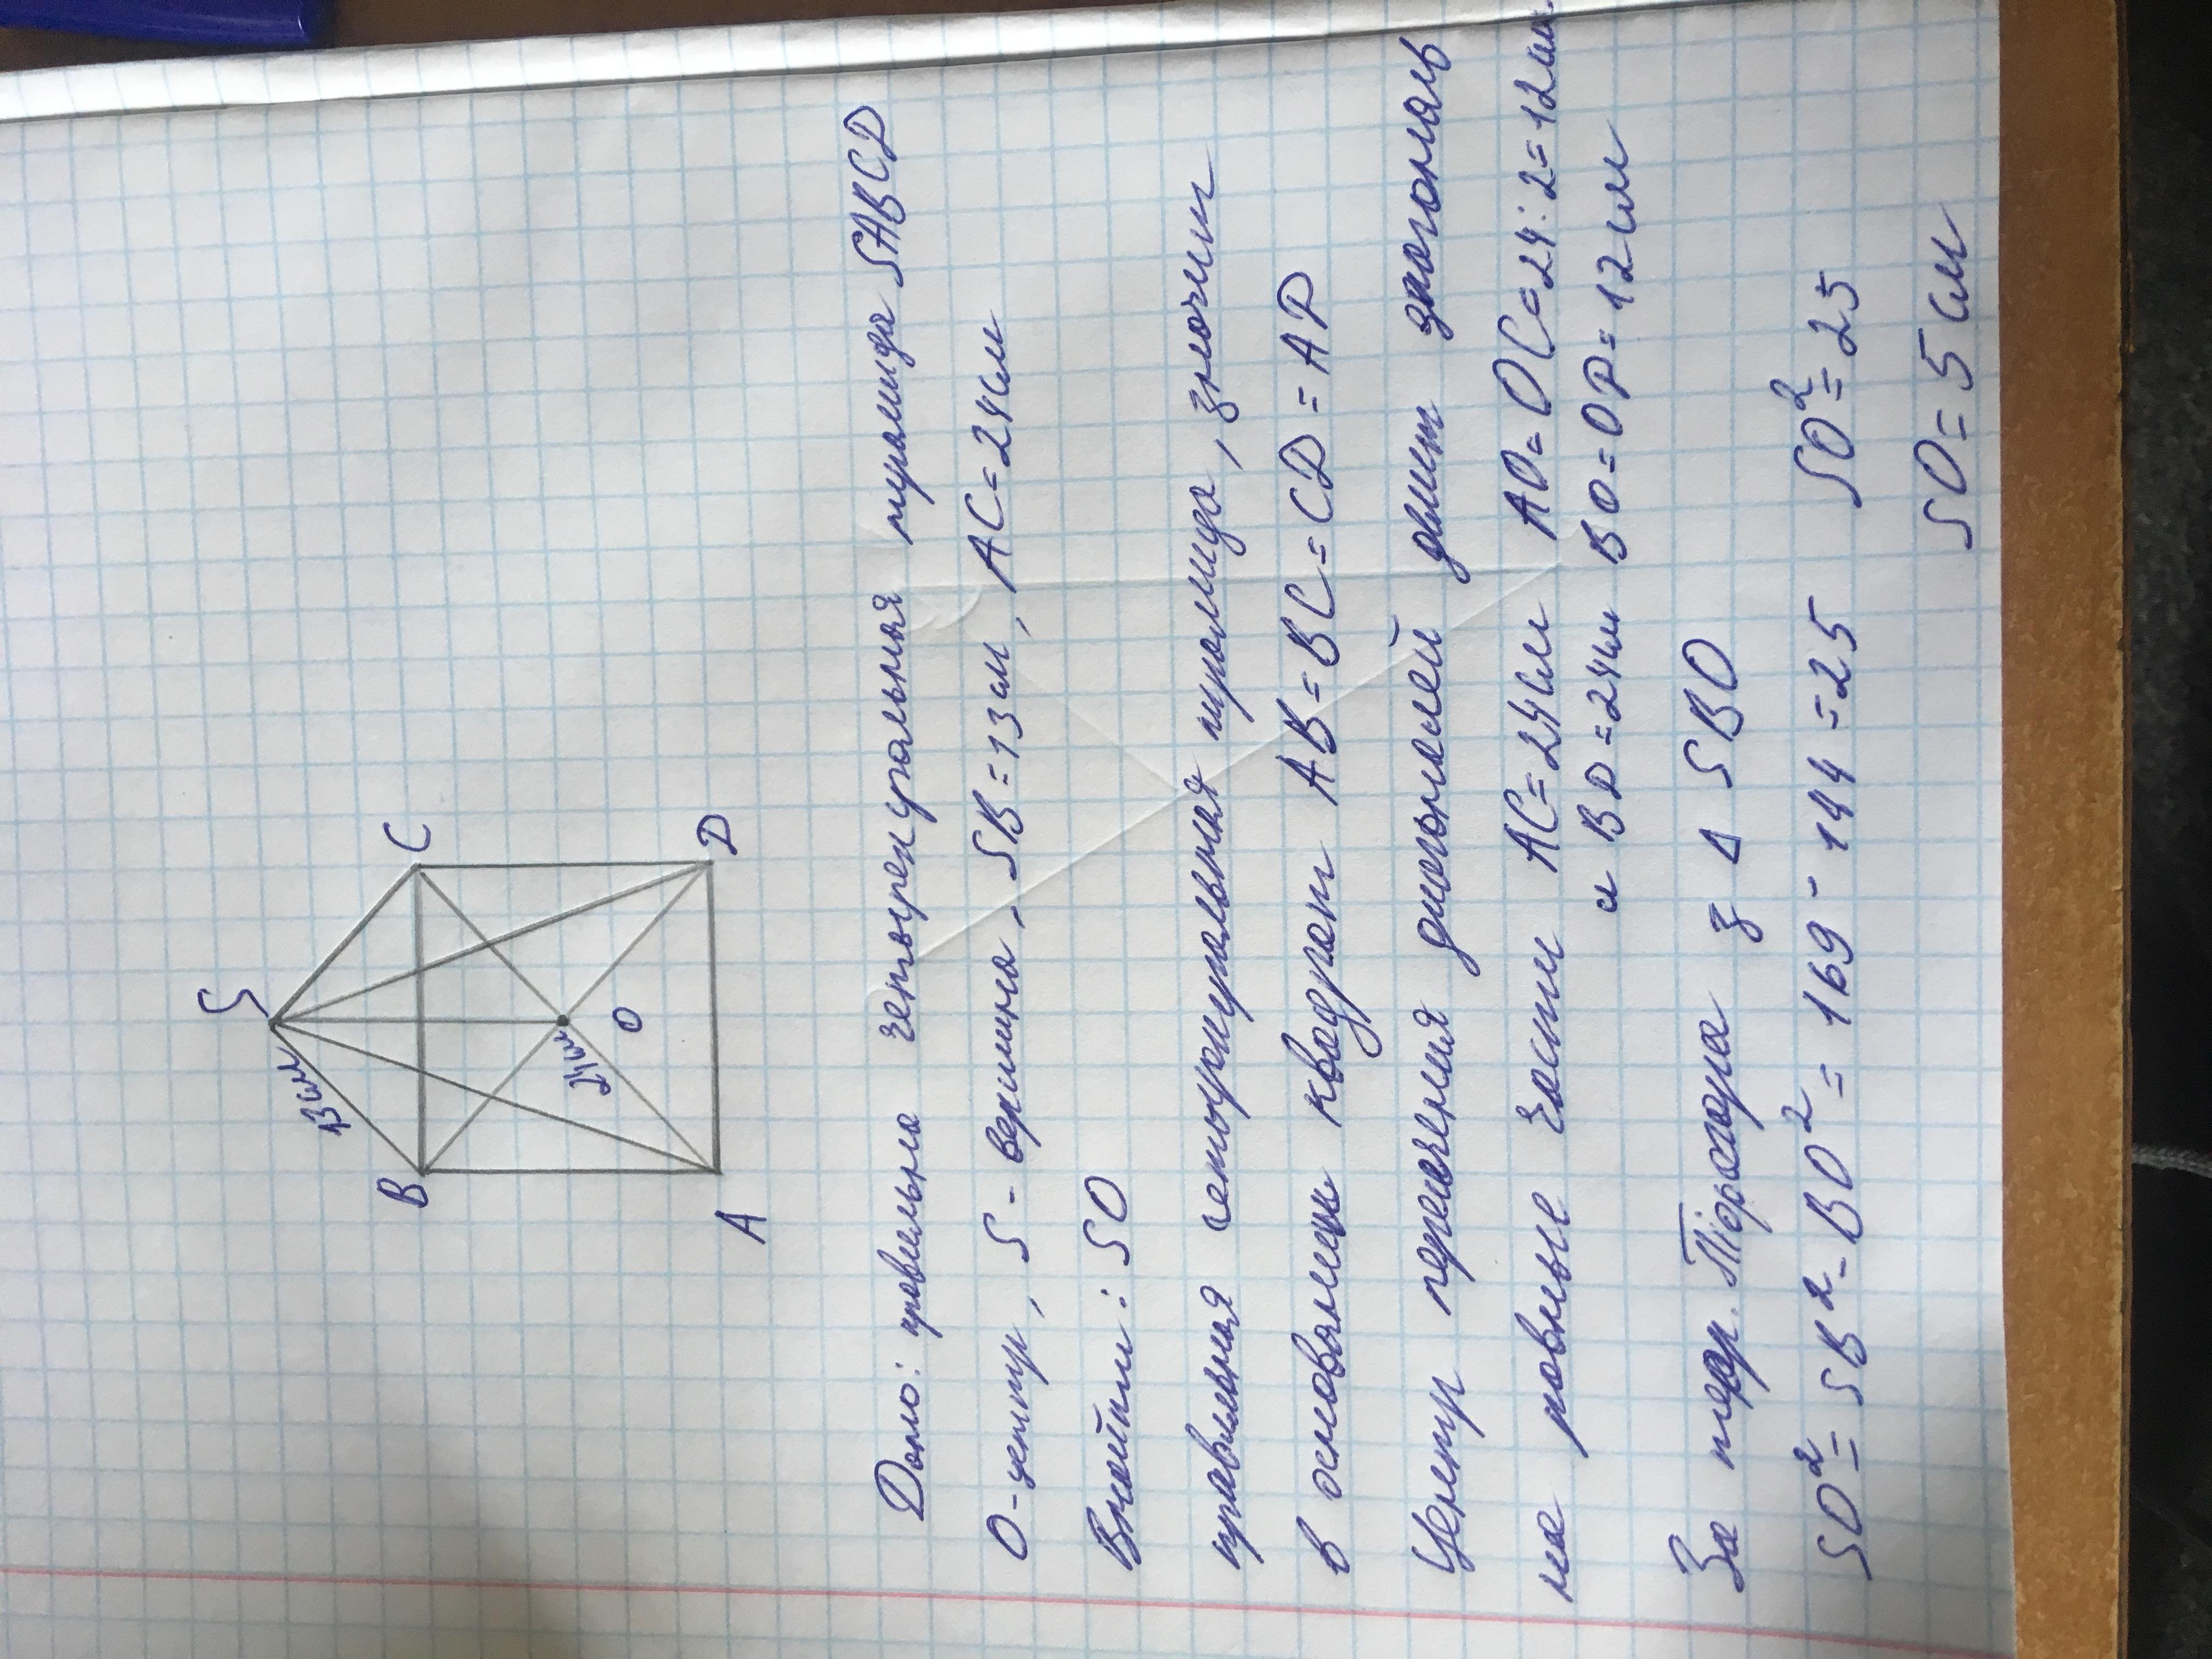 S
13 см
B
C
24см
O
A
D
Дано: правильна четырехугольная пирамида SABCD
O-центр, S- вершина, SB=13 см, AC=24см
Знайти: SO
правильная четырехугольная пирамида, значит
в основании квадрат AB=BC=CD=AD
Центр пересечения диагоналей делит диагональ
на равные части AC=24см AO=OC=24:2=12см
и BD=24см BO=OD=12см
За теор. Піфагора з Δ SBO
SO²=SB²-BO²=169-144=25 SO²=25
SO=5см